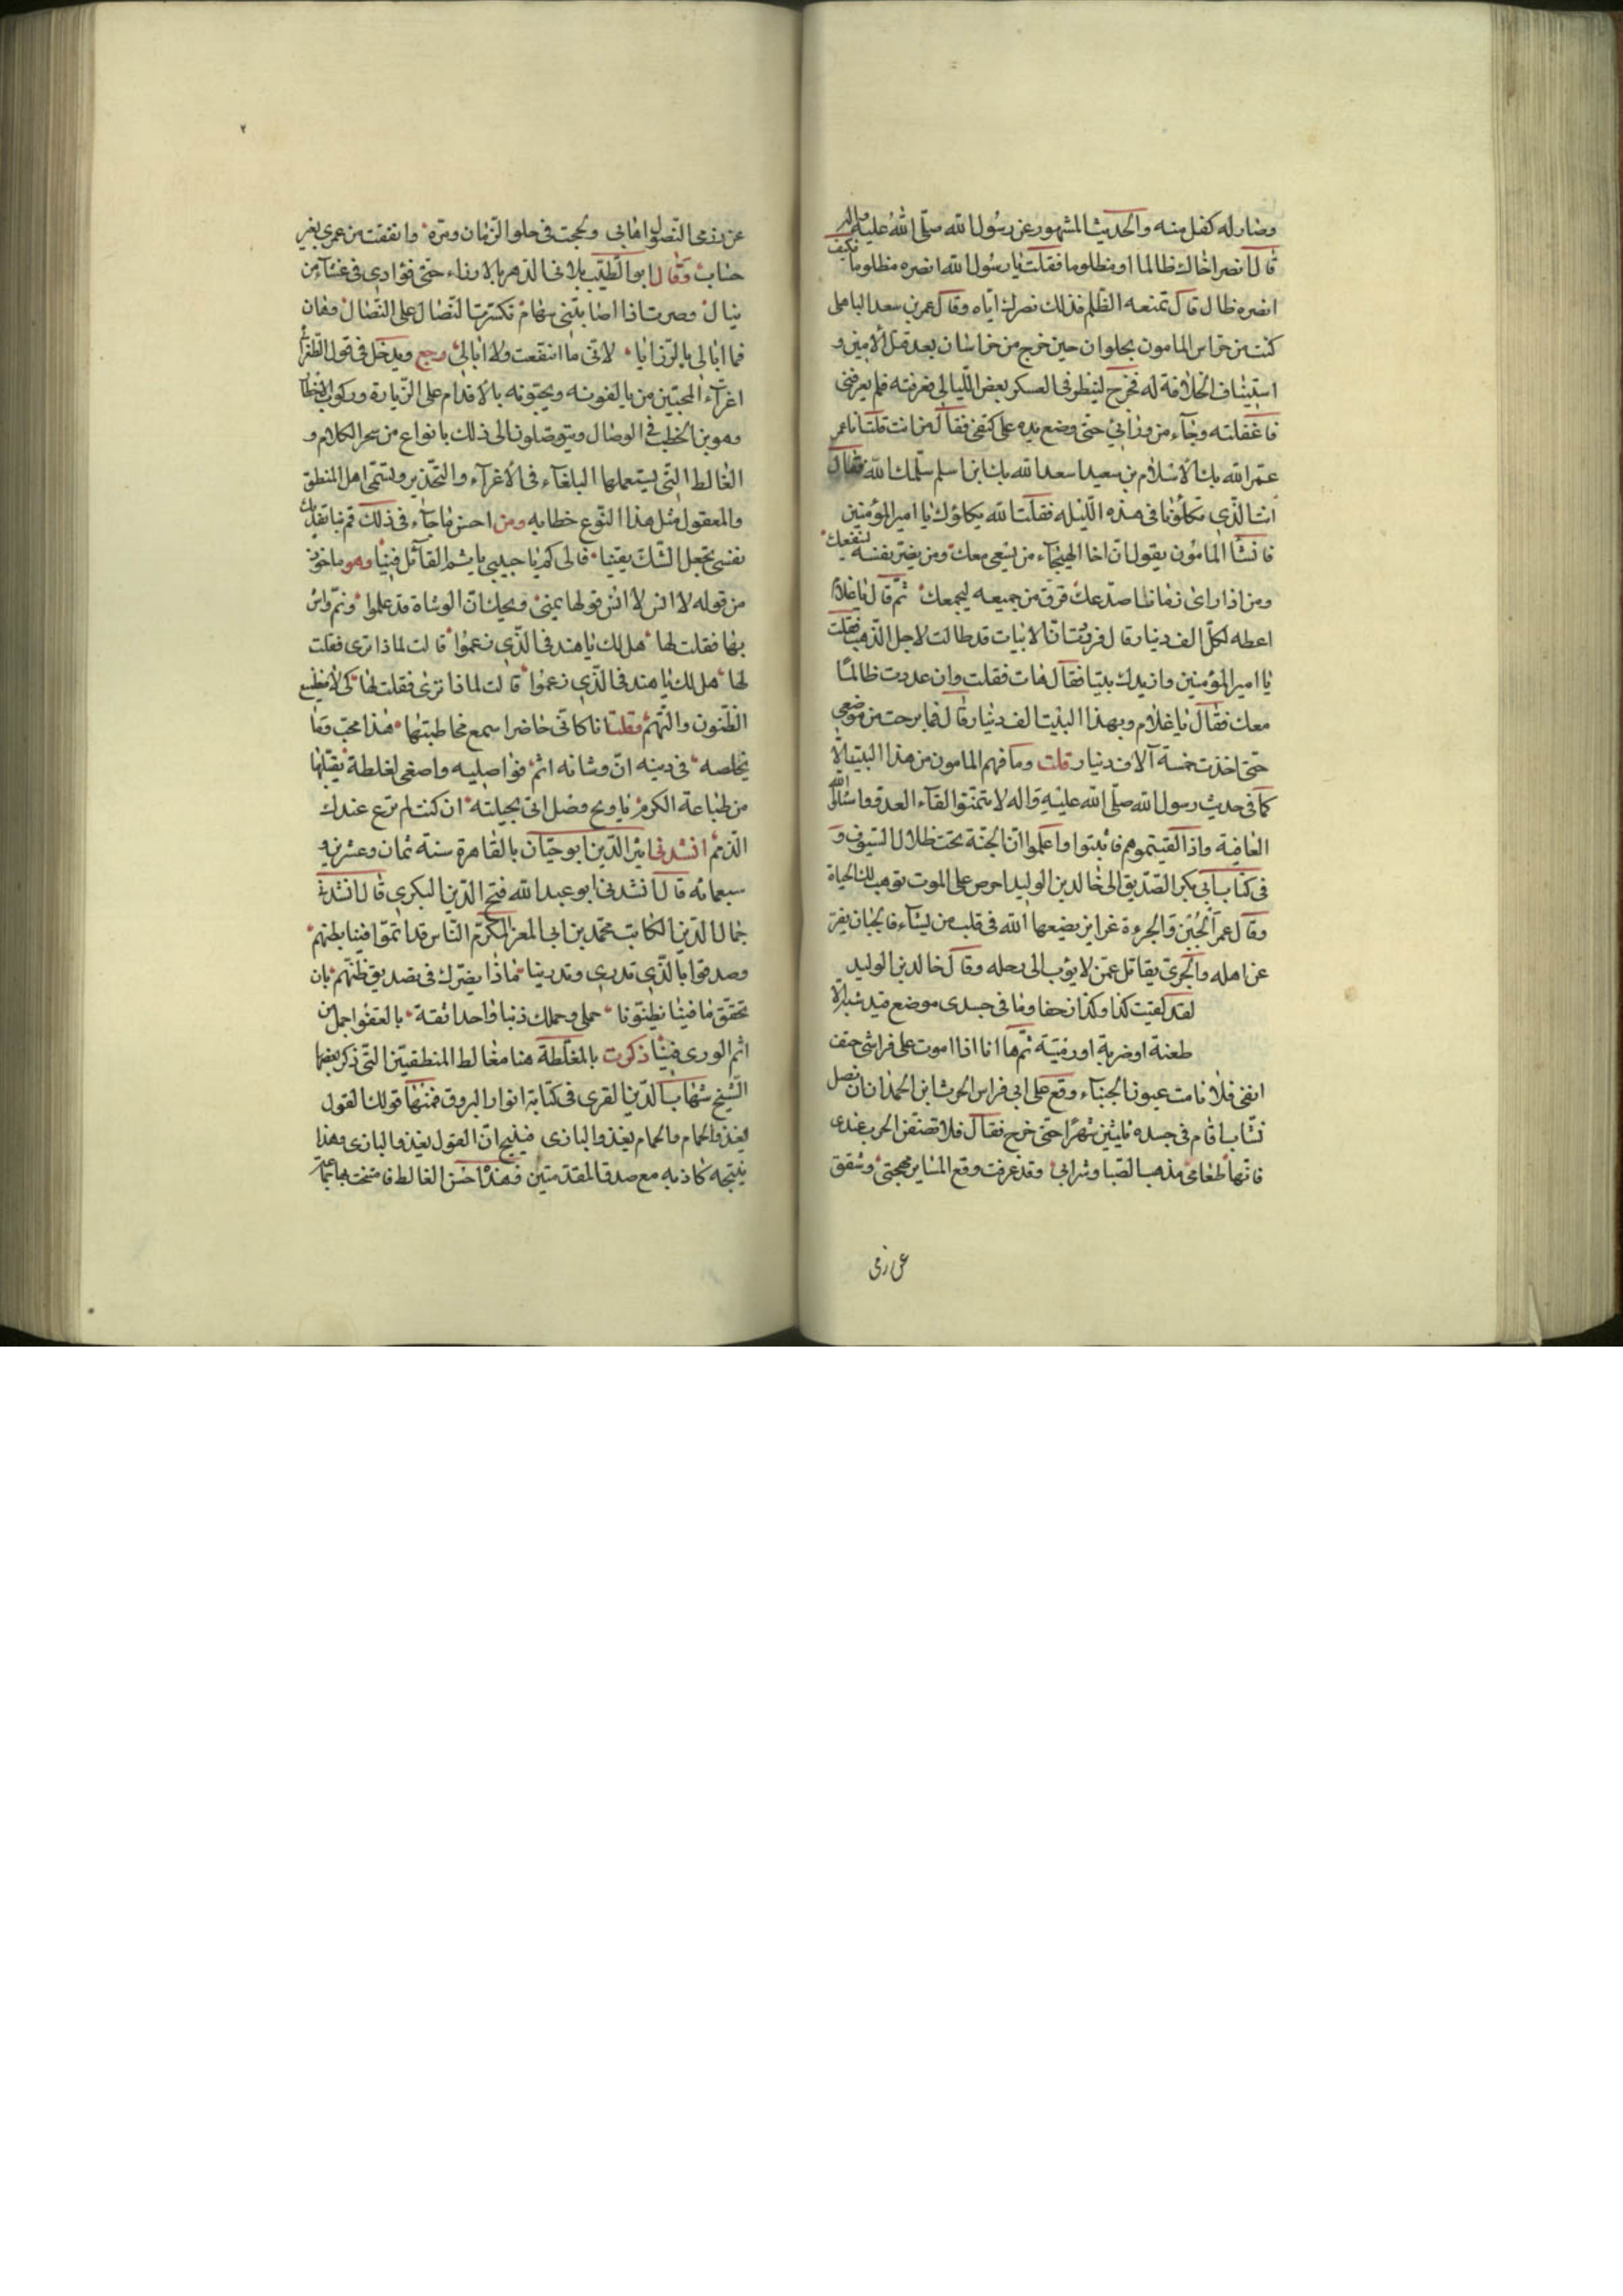 وصار له كفل منه والحديث المشهور عن رسول الله صلى الله عليه واله
قال انصر اخاك ظالما او مظلوما فقلت يا رسول الله انصره مظلوما فكيف
انصره ظالما قال تمنعه الظلم فذلك نصرك اياه وقال عمر بن سعد الباهلى
كنت من حراس المامون بحلوان حين خرج من خراسان بعد قتل الامين و
استيناف الخلافة له فخرج لينظر فى العسكر بعض الليالى فعرفته فلم يعرفنى
فاغفلته وجاء من ورائى حتى وضع يده على كتفى فقال من انت قلت انا عمر
عمّر الله بك الاسلام بن سعيد اسعد الله بك ابن اسلم سلمك الله فقال
انت الذى تكلؤنا فى هذه الليله فقلت الله يكلؤك يا امير المؤمنين
فانشا المامون يقول ان اخا الهيجاء من يسعى معك ومن يضر نفسه لينفعك
ومن اذا راى زمانا صدعك فرق من جميعه ليجمعك ثم قال يا غلام
اعطه لكل الف دينار قال فوددت ان الابيات قد طالت لاجل الذهب فقلت
يا امير المؤمنين وازيدك بيتا فقال هات فقلت وان غدوت ظالمًا
معك فقال يا غلام وبهذا البيت الف دينار قال فما برحت من موضعى
حتى اخذت خمسة آلاف دينار قلت وما فهم المامون من هذا البيت الا
كما فى حديث رسول الله صلى الله عليه واله لا تتمنوا لقاء العدو واسالوا الله
العافية واذا لقيتموهم فاثبتوا واعلموا ان الجنة تحت ظلال السيوف و
فى كتاب ابى بكر الصديق الى خالد بن الوليد احرص على الموت توهب لك الحياة
وقال عمر الجبن والجرءة غرايز يضعها الله فى قلب من يشاء فالجبان يفر
عن اهله والجرى يقاتل عمن لا يؤب الى رحله وقال خالد بن الوليد
لقد لقيت كذا وكذا زحفا وما فى جسدى موضع قيد شبر الا
طعنة او ضربة او رمية ثم ها انا اذا اموت على فراشى حتف
انفى فلا نامت عيون الجبناء وقع على ابى فراس الحرث ابن الحمدان نصل
نشاب اقام فى جسده ثليثين شهرًا حتى خرج فقال فلا تصفن الحرب عندى
فانها طعامى مذ هب الصبا وشرابى وقد عرفت وقع المسامير مهجتى وشقق
عن زرق
عن زرق النصول اهابى ولججت فى حلو الزمان ومره وانفقت من عمرى بغير
حساب وقال ابو الطيب رمانى الدهر بالارزاء حتى فؤادى فى غشاء من
نبال وصرت اذا اصابتنى سهام تكسرت النصال على النصال وهان
فما ابالى بالرزايا لانى ما انتفعت ولا ابالى رجع ويدخل فى قول الطغرائى
اغراء المحبين من يالفونه ويحبونه بالاقدام على الزيارة وركوب الخطا
وهوين الخطب فى الوصال ويتوصلون الى ذلك بانواع من سحر الكلام و
المغالط التى يستعملها البلغاء فى الاغراء والتحذير ويسمى اهل المنطق
والمعقول مثل هذا النوع خطابه ومن احسن ما جاء فى ذلك قم بنا تفديك
نفسى نجعل الشك يقينا فالى كم يا حبيبى ياثم القائل فينا وهو ماخوذ
من قوله لا انس لا انس قولها بمنى ويحك ان الوشاة قد علموا ونم واش
بنا فقلت لها هل لك يا هند فى الذى زعموا قالت لماذا ترى فقلت
لها هل لك يا هند فى الذى زعموا قالت لماذا ترى فقلت لها كى لا تضيع
الظنون والتهم وقلت انا كانى حاضر اسمع مخاطبتها هذا محب وما
يخلصه فى دينه ان وشاته اثم فواصليه واصغى لغلطة يقبلها
من طباعه الكرم يا ويح وصل اتى بحيلته ان كنت لم ترع عندك
الذمم انشدنى اثير الدين ابو حيان بالقاهرة سنة ثمان وعشرين و
سبعمائه قال انشدنى ابو عبد الله فتح الدين البكرى قال انشدنى
جمال الدين الكاتب محمد بن ابى المعز المكرم الناس قد اثموا فينا بظنهم
وصدقوا بالذى تدرى وتدرينا ماذا يضرك فى تصديق ظنهم بان
تحقق ما فينا يظنونا حملى وحملك ذنبا واحدا ثقة بالعفو اجمل من
اثم الورى فينا ذكرت بالمغلطة هنا مغالط المنطقيين التى ذكر بعضها
الشيخ شهاب الدين القرى فى كتابه انوار البروق فمنها قولك الفول
يغذو الحمام والحمام يغذو البازى فينتج ان الفول يغذو البازى وهذا
نتيجه كاذبه مع صدق المقدمتين وهذا احسن المغالط